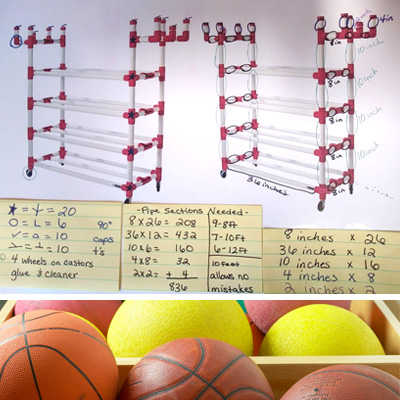 4in
8in
10 inch
10 inch
8in
10 inch
8in
10 inch
8in
10 inch
8in
36 inches
8in
✶ = = 20
O = L = 6 90°
✓ = = 10 caps
= = 10 t's
4 wheels on castors
glue & cleaner
-Pipe Sections Needed-
8 x 26 = 208
36 x 12 = 432
10 x 6 = 160
4 x 8 = 32
2 x 2 = + 4
836
9-8ft
7-10Ft
6-12Ft
10 feet
allows no
mistakes
8 inches x 26
36 inches x 12
10 inches x 16
4 inches x 8
2 inches x 2